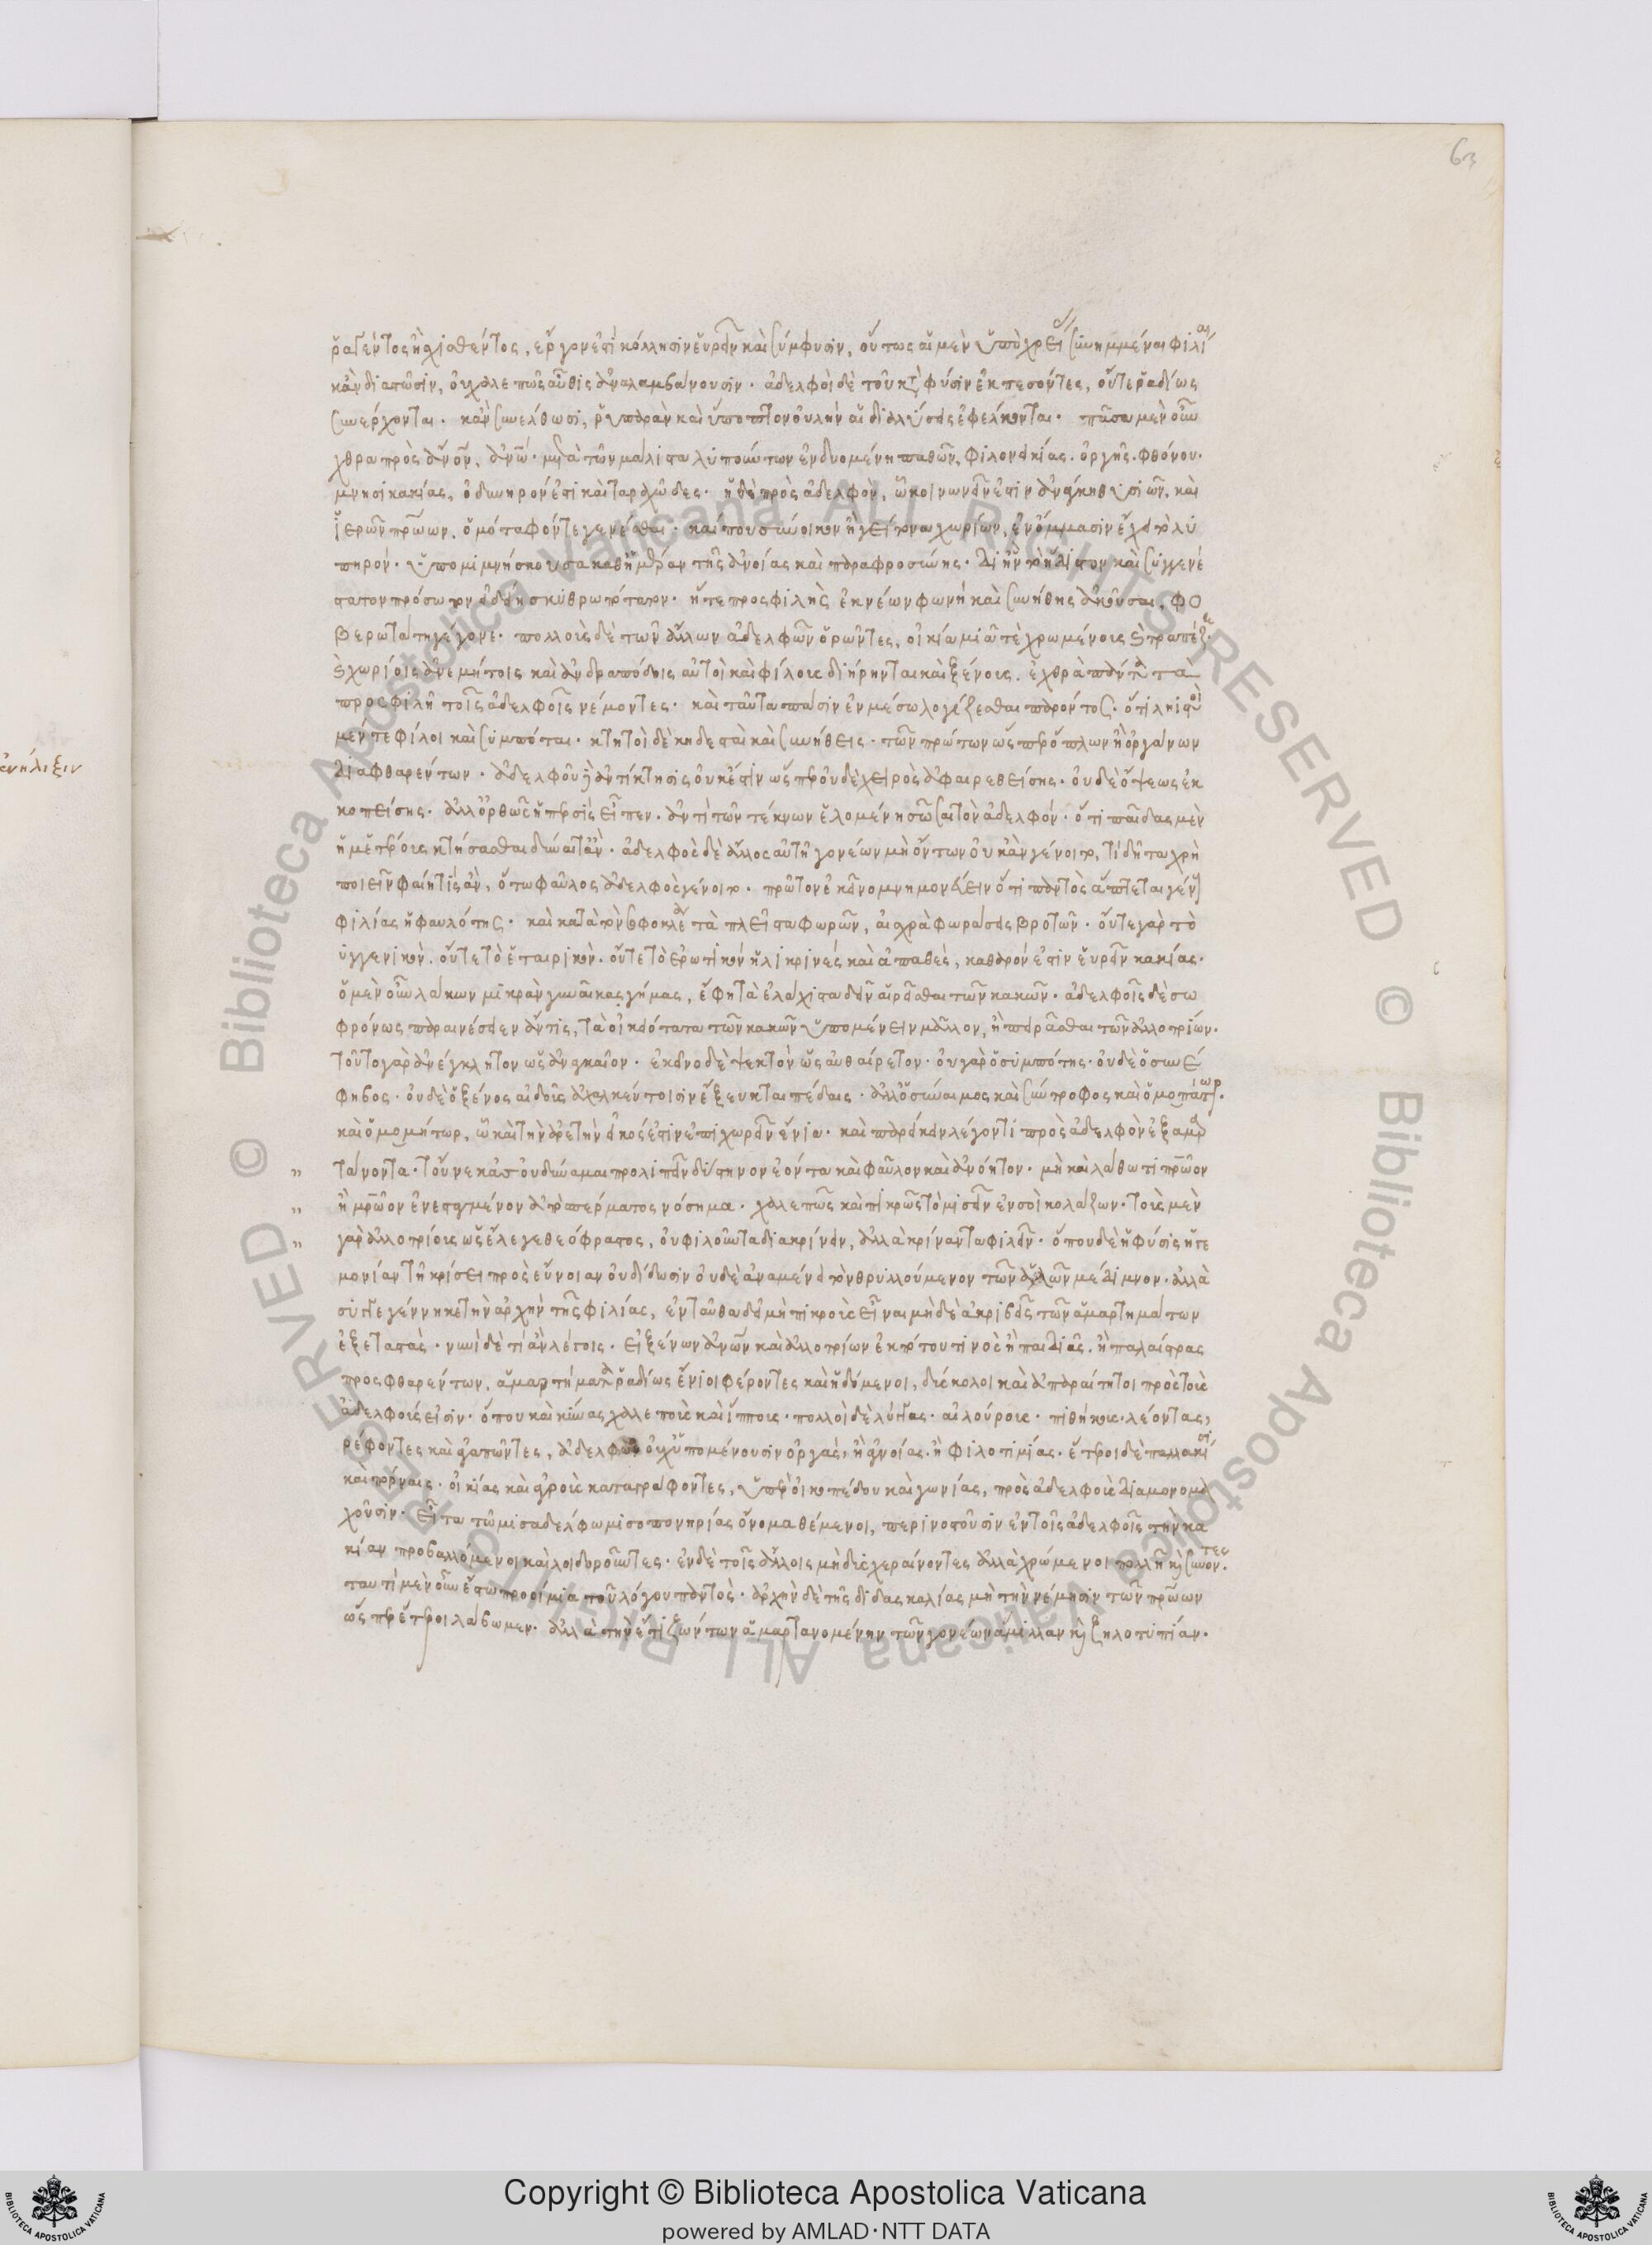 63
ῥαγέντος ἢ χλασθέντος, ἔργον ἐστὶ κόλλησιν εὑρεῖν καὶ σύμφυσιν, οὕτως αἱ μὲν ὑπὸ χρείας συνημμέναι φιλίαι
κἂν διαστῶσιν, οὐ χαλεπῶς αὖθις ἀναλαμβάνουσιν. ἀδελφοὶ δὲ τοῦ κατὰ φύσιν ἐκπεσόντες, οὔτε ῥαδίως
συνέρχονται. κἂν συνέλθωσι, ῥυπαρὰν καὶ ὕποπτον οὐλὴν αἱ διαλύσεις ἐφέλκονται. πᾶσα μὲν οὖν
χθρα πρὸς ἄνον, ἀνω. μετὰ τῶν μάλιστα λυπούντων ἐνδυομένη παθῶν, φιλονεικίας. ὀργῆς. φθόνου.
μνησικακίας, ὀδυνηρόν ἐστι καὶ ταραχῶδες. ἡ δὲ πρὸς ἀδελφὸν, ᾧ κοινωνεῖν ἐστιν ἀνάγκη θυσιῶν, καὶ
ἱερῶν πρώων, ὁμόταφόν τε γενέσθαι. καί που σύνοικον ἢ γείτονα χωρίων, ἐν ὄμμασιν ἔχει τὸ λυ
πηρόν. ὑπομιμνήσκουσα καθ' ἡμέραν τῆς ἀνοίας καὶ παραφροσύνης. δι' ἣν τὸ ἥδιστον καὶ συγγενέ
στατον πρόσωπον εἰδεῖν σκυθρωπότατον. ἥ τε προσφιλὴς ἐκ νέων φωνὴ καὶ συνήθης ἀκοῦσαι, φο
βερωτάτη γέγονε. πολλοὺς δὲ τῶν ἄλλων ἀδελφῶν ὁρῶντες, οἰκίᾳ μιᾷ τε χρωμένους καὶ τραπέζῃ.
καὶ χωρίοις ἀνεμήτοις καὶ ἀνδραπόδοις αὐτοὶ καὶ φίλους διῄρηνται καὶ ξένους. ἐχθρὰ πάντα τὰ
προσφιλῆ τοῖς ἀδελφοῖς νέμοντες. καὶ ταῦτα πᾶσιν ἐν μέσῳ λογίζεσθαι παρόντος. ὅτι ληιστοὶ
μέν τε φίλοι καὶ συμπόται. κτητοὶ δὲ κηδεσταὶ καὶ συνήθεις. τῶν πρώτων ὥσπερ ὅπλων ἢ ὀργάνων
διαφθαρέντων. ἀδελφοῦ δ' ἀντίκτησις οὐκ ἔστιν ὥσπερ οὐδὲ χειρὸς ἀφαιρεθείσης. οὐδὲ ὄψεως ἐκ
κοπείσης. ἀλλ' ὀρθῶς ἡ περσὶς εἶπεν. ἀντὶ τῶν τέκνων ἑλομένη σῶσαι τὸν ἀδελφόν. ὅτι παῖδας μὲν
ἡ μὲ ἑτέρους κτήσασθαι δύναιτ' ἄν. ἀδελφὸς δὲ ἄλλος αὐτῇ γονέων μὴ ὄντων οὐκ ἂν γένοιτο, τί δῆτα χρὴ
ποιεῖν φαίη τις ἂν, ὅτῳ φαῦλος ἀδελφὸς γένοιτο. πρῶτον ἐκεῖνο μνημονεύειν ὅτι παντὸς ἅπτεται γένους
φιλίας ἡ φαυλότης. καὶ κατὰ τὸν σοφοκλέα τὰ πλεῖστα φωρῶν, αἰσχρὰ φωράσεις βροτῶν. οὔτε γὰρ τὸ
υγγενικὸν. οὔτε τὸ ἑταιρικὸν. οὔτε τὸ ἐρωτικὸν εἰλικρινὲς καὶ ἀπαθὲς, καθαρόν ἐστιν εὑρεῖν κακίας.
ὁ μὲν οὖν λάκων μικρὰν γυναῖκας γήμας, ἔφη τὰ ἐλάχιστα δεῖν αἱρεῖσθαι τῶν κακῶν. ἀδελφοῖς δὲ σω
φρόνως παραινέσειεν ἄν τις, τὰ οἰκειότατα τῶν κακῶν ὑπομένειν μᾶλλον, ἢ πειρᾶσθαι τῶν ἀλλοτρίων.
τοῦτο γὰρ ἀνέγκλητον ὡς ἀναγκαῖον. ἐκεῖνο δὲ ψεκτὸν ὡς αὐθαίρετον. οὐ γὰρ ὁ συμπότης. οὐδὲ ὁ συνέ
φηβος. οὐδὲ ὁ ξένος αἰδοῦς ἀχαλκεύτοισιν ἔξευκται πέδαις. ἀλλ' ὁ σύναιμος καὶ σύντροφος καὶ ὁμοπάτωρ.
καὶ ὁμομήτωρ, ᾧ καὶ τὴν ἀρετὴν εἰκός ἐστιν ἐπιχωρεῖν ἔνια. καὶ παρείκειν λέγοντι πρὸς ἀδελφὸν ἐξαμαρ
τάνοντα. τοὔνεκά σ' οὐ δύναμαι προλιπεῖν δύστηνον ἐόντα καὶ φαῦλον καὶ ἀνόητον. μὴ καὶ λάθω τι πρῷον
ἢ μρῷον ἐνεσταγμένον ἀπὸ σπέρματος νόσημα. χαλεπῶς καὶ πικρῶς τὸ μισεῖν ἐν σοὶ κολάζων. τοὺς μὲν
γὰρ ἀλλοτρίους ὡς ἔλεγε θεόφραστος, οὐ φιλοῦντα δεῖ κρίνειν, ἀλλὰ κρίναντα φιλεῖν. ὅπου δὲ ἡ φύσις ἡγε
μονίαν τῇ κρίσει πρὸς εὔνοιαν οὐ δίδωσιν οὐδὲ ἀναμένει τὸν θρυλλούμενον τῶν ἁλῶν μέδιμνον. ἀλλὰ
συγγεγέννηκε τὴν ἀρχὴν τῆς φιλίας, ἐνταῦθα δεῖ μὴ πικροὺς εἶναι μὴ δὲ ἀκριβεῖς τῶν ἁμαρτημάτων
ἐξεταστάς. νυνὶ δὲ τί ἂν λέγοις. εἰ ξένων ἀνῶν καὶ ἀλλοτρίων ἐκ πότου τινὸς ἢ παιδιᾶς. ἢ παλαίστρας
προσφθαρέντων, ἁμαρτήματα ῥαδίως ἔνιοι φέροντες καὶ ἡδόμενοι, δύσκολοι καὶ ἀπαραίτητοι πρὸς τοὺς
ἀδελφοὺς εἰσιν. ὅπου καὶ κύνας χαλεποὺς καὶ ἵππους. πολλοὶ δὲ λύγγας. αἰλούρους. πιθήκους. λέοντας,
ρέφοντες καὶ ἀγαπῶντες, ἀδελφῶν οὐχ ὑπομένουσιν ὀργὰς, ἢ ἀγνοίας. ἢ φιλοτιμίας. ἕτεροι δὲ παλλακίσι
και πόρναις. οἰκίας καὶ ἀγροὺς καταγράφοντες, ὑπὲρ οἰκοπέδου καὶ γωνίας, πρὸς ἀδελφοὺς διαμονομα
χοῦσιν. εἶτα τῷ μισαδέλφῳ μισοπονηρίας ὄνομα θέμενοι, περινοστοῦσιν ἐν τοῖς ἀδελφοῖς τὴν κα
κίαν προβαλλόμενοι καὶ λοιδοροῦντες. ἐν δὲ τοῖς ἄλλοις μὴ δυσχεραίνοντες ἀλλὰ χρώμενοι πολλῇ καὶ συνόντες.
ταυτὶ μὲν οὖν ἔστω προοίμια τοῦ λόγου παντός. ἀρχὴν δὲ τῆς διδασκαλίας μὴ τὴν νέμησιν τῶν πρώων
ὥσπερ ἕτεροι λάβωμεν. ἀλλὰ τὴν ἔτι ζώντων ἁμαρτανομένην τῶν γονέων ἅμιλλαν καὶ ζηλοτυπίαν.
Copyright © Biblioteca Apostolica Vaticana
powered by AMLAD·NTT DATA